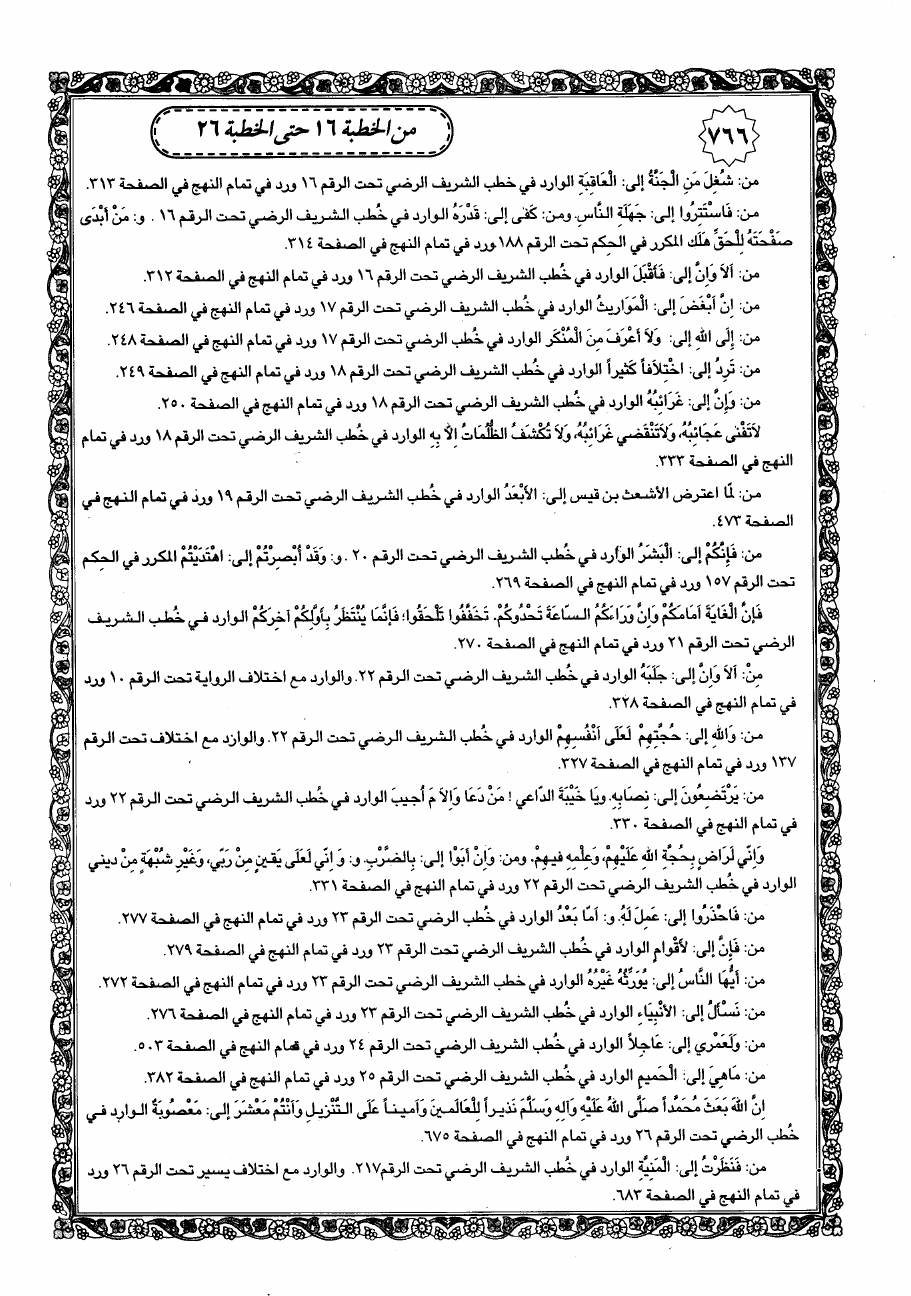 ٧٦٦
من الخطبة ١٦ حتى الخطبة ٢٦
من: شُغِلَ مَنِ الْجَنَّةُ إلى: الْعَاقِبَةِ الوارد في خطب الشريف الرضي تحت الرقم ١٦ ورد في تمام النهج في الصفحة ٣١٣.
من: فَاسْتَتِرُوا إلى: جَهَلَةِ النَّاسِ. ومن: كَفى إلى: قَدْرَهُ الوارد في خُطب الشريف الرضي تحت الرقم ١٦ . و: مَنْ أَبْدَى
صَفْحَتَهُ لِلْحَقِّ هَلَكَ المكرر في الحكم تحت الرقم ١٨٨ ورد في تمام النهج في الصفحة ٣١٤.
من: أَلاَ وَإِنَّ إلى: فَأَقْبَلَ الوارد في خُطب الشريف الرضي تحت الرقم ١٦ ورد في تمام النهج في الصفحة ٣١٢.
من: إِنَّ أَبْغَضَ إلى: الْمَوَاريثُ الوارد في خُطب الشريف الرضي تحت الرقم ١٧ ورد في تمام النهج في الصفحة ٢٤٦.
من: إِلَى اللهِ إلى: وَلاَ أَعْرَفَ مِنَ الْمُنْكَرِ الوارد في خُطب الشريف الرضي تحت الرقم ١٧ ورد في تمام النهج في الصفحة ٢٤٨.
من: تَرِدُ إلى: اخْتِلاَفاً كَثيراً الوارد في خُطب الشريف الرضي تحت الرقم ١٨ ورد في تمام النهج في الصفحة ٢٤٩.
من: وَإِنَّ إلى: غَرَائِبُهُ الوارد في خُطب الشريف الرضي تحت الرقم ١٨ ورد في تمام النهج في الصفحة ٢٥٠.
لاَتَفْنى عَجَائِبُهُ، وَلاَتَنْقَضي غَرَائِبُهُ، وَلاَ تُكْشَفُ الظُّلُمَاتُ إِلاَّ بِهِ الوارد في خُطب الشريف الرضي تحت الرقم ١٨ ورد في تمام
النهج في الصفحة ٣٣٣.
من: لمّا اعترض الأشعث بن قيس إلى: الأَبْعَدُ الوارد في خُطب الشريف الرضي تحت الرقم ١٩ ورد في تمام النهج في
الصفحة ٤٧٣.
من: فَإِنَّكُمْ إلى: الْبَشَرُ الوارد في خُطب الشريف الرضي تحت الرقم ٢٠ . و: وَقَدْ أُبْصِرْتُمْ إلى: اهْتَدَيْتُمْ المكرر في الحكم
تحت الرقم ١٥٧ ورد في تمام النهج في الصفحة ٢٦٩.
فَإِنَّ الْغَايَةَ أَمَامَكُمْ وَإِنَّ وَرَاءَكُمُ السَّاعَةَ تَحْدُوكُمْ. تَخَفَّفُوا تَلْحَقُوا؛ فَإِنَّمَا يُنْتَظَرُ بِأَوَّلِكُمْ آخِرُكُمْ الوارد في خُطب الشريف
الرضي تحت الرقم ٢١ ورد في تمام النهج في الصفحة ٢٧٠.
مِنْ: أَلاَ وَإِنَّ إلى: جَلَبَهُ الوارد في خُطب الشريف الرضي تحت الرقم ٢٢. والوارد مع اختلاف الرواية تحت الرقم ١٠ ورد
في تمام النهج في الصفحة ٣٢٨.
من: وَاللهِ إلى: حُجَّتِهِمْ لَعَلَى أَنْفُسِهِمْ الوارد في خُطب الشريف الرضي تحت الرقم ٢٢. والوارد مع اختلاف تحت الرقم
١٣٧ ورد في تمام النهج في الصفحة ٣٢٧.
من: يَرْتَضِعُونَ إلى: نِصَابِهِ. ويَا خَيْبَةَ الدَّاعي ! مَنْ دَعَا وَإِلاَمَ أُجيبَ الوارد في خُطب الشريف الرضي تحت الرقم ٢٢ ورد
في تمام النهج في الصفحة ٣٣٠.
وَإِنّي لَرَاضٍ بِحُجَّةِ اللهِ عَلَيْهِمْ، وَعِلْمِهِ فيهِمْ. ومن: وَإِنْ أَبَوْا إلى: بِالضَّرْبِ. و: وَإِنّي لَعَلى يَقينٍ مِنْ رَبّي، وَغَيْرِ شُبْهَةٍ مِنْ ديني
الوارد في خُطب الشريف الرضي تحت الرقم ٢٢ ورد في تمام النهج في الصفحة ٣٣١.
من: فَاحْذَرُوا إلى: عَمِلَ لَهُ. و: أَمَّا بَعْدُ الوارد في خُطب الشريف الرضي تحت الرقم ٢٣ ورد في تمام النهج في الصفحة ٢٧٧.
من: فَإِنَّ إلى: لأَقْوَامٍ الوارد في خُطب الشريف الرضي تحت الرقم ٢٣ ورد في تمام النهج في الصفحة ٢٧٩.
من: أَيُّهَا النَّاسُ إلى: يُوَرِّثُهُ غَيْرُهُ الوارد في خطب الشريف الرضي تحت الرقم ٢٣ ورد في تمام النهج في الصفحة ٢٧٢.
من: نَسْأَلُ إلى: الأَنْبِيَاءِ الوارد في خُطب الشريف الرضي تحت الرقم ٢٣ ورد في تمام النهج في الصفحة ٢٧٦.
من: وَلَعَمْري إلى: عَاجِلاً الوارد في خُطب الشريف الرضي تحت الرقم ٢٤ ورد في تمام النهج في الصفحة ٥٠٣.
من: مَاهِيَ إلى: الْحَميمِ الوارد في خُطب الشريف الرضي تحت الرقم ٢٥ ورد في تمام النهج في الصفحة ٣٨٢.
إِنَّ اللهَ بَعَثَ مُحَمَّداً صَلَّى اللهُ عَلَيْهِ وَآلِهِ وَسَلَّمَ نَذيراً لِلْعَالَمينَ وَأَميناً عَلَى التَّنْزيلِ وَأَنْتُمْ مَعْشَرَ إلى: مَعْصُوبَةٌ الوارد في
خُطب الرضي تحت الرقم ٢٦ ورد في تمام النهج في الصفحة ٦٧٥.
من: فَنَظَرْتُ إلى: الْمَنِيَّةِ الوارد في خُطب الشريف الرضي تحت الرقم٢١٧. والوارد مع اختلاف يسير تحت الرقم ٢٦ ورد
في تمام النهج في الصفحة ٦٨٣.